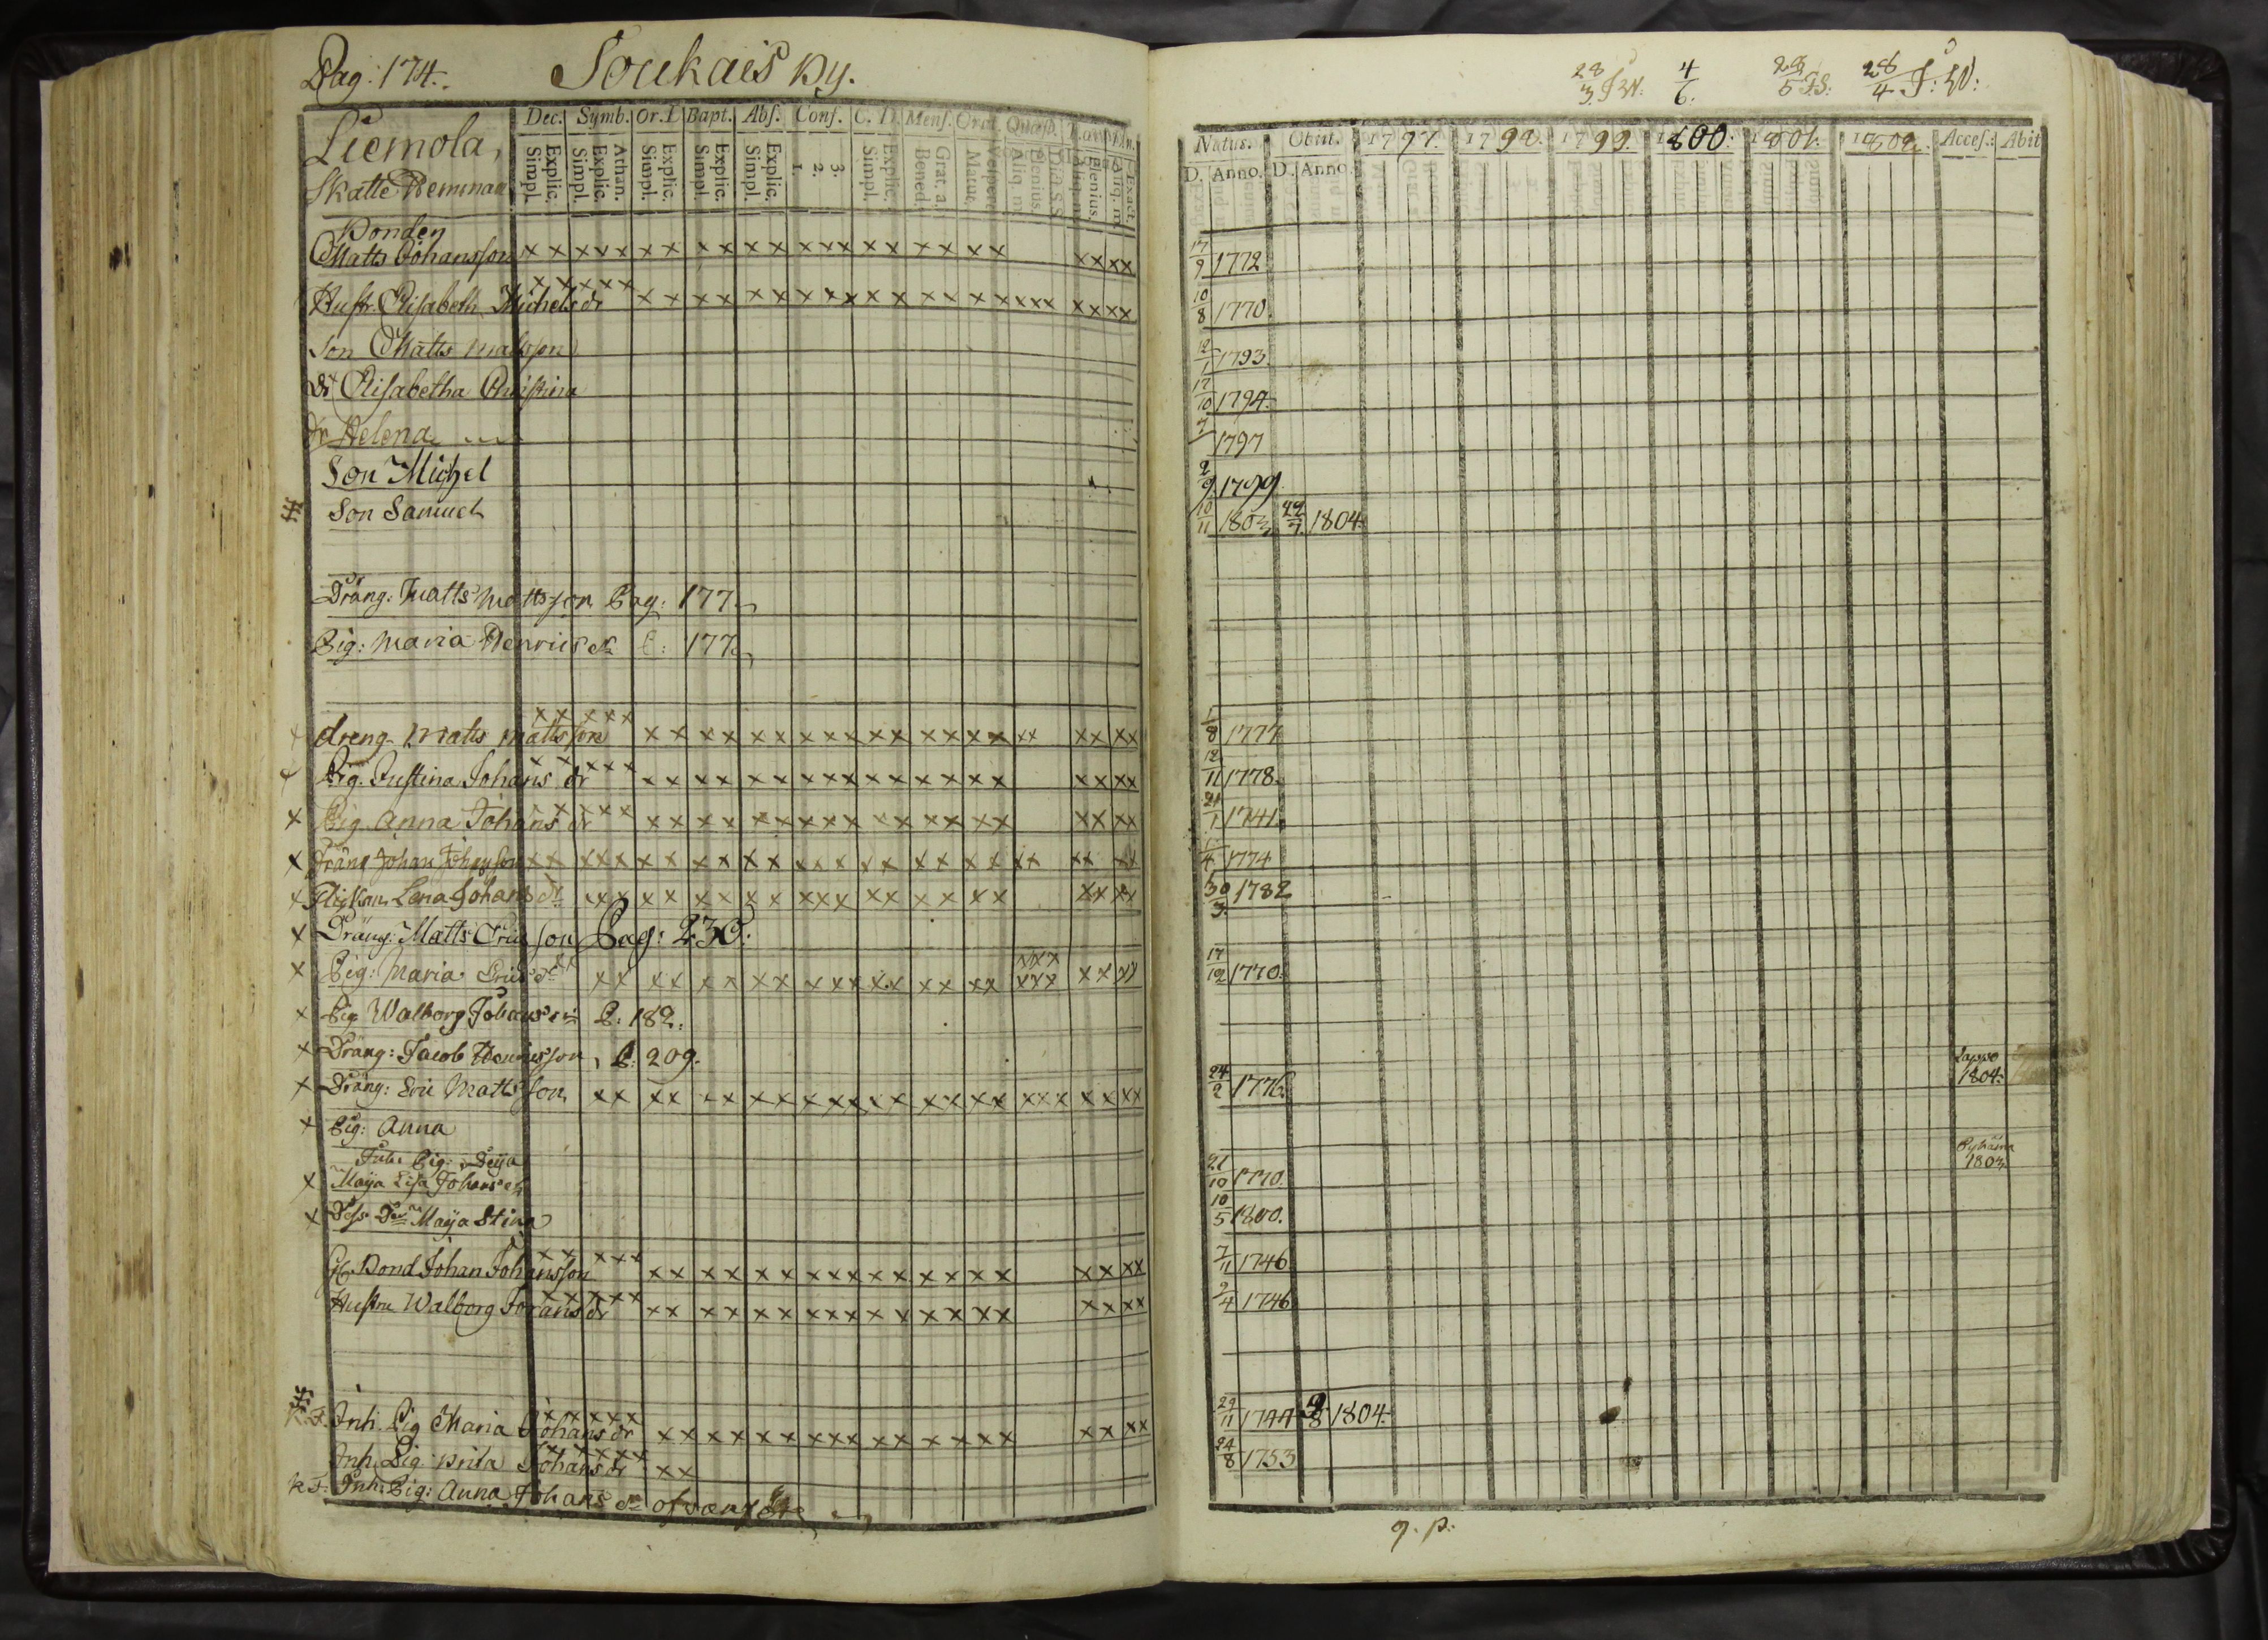 Pag: 174. Soukais By.
28/3 J.W. 4/6. 28/5 J.S: 28/4 J: W:
Liemola, Dec. Symb. Or. D Bapt. Abs. Conf. C. D. Mens. Orat. Quæsd.
Skatte Hemman
Explic. Simpl. Athan. Explic. Simpl. Explic. Simpl. Explic. Simpl. Explic. Simpl. 3. 2. 1. Explic. Simpl. Grat. a. Bened. Vesper. Matut.
Natus. Obiit. 1797. 1798. 1799. 1800. 1801. 1802. Acces.: Abit
D. Anno. D. Anno.
Bonden
Matts Johansson x x x x x x x x x x x x x x x x x x x x x x x x 17/9 1772
Hustr. Elisabeth Michels dr x x x x x x x x x x x x x x x x x x x x x x x x x x x 10/8 1770.
Son Matts Mattsson 12/1 1793.
Dr Elisabetha Christina 17/10 1794.
Dr Helena 1797
Son Michel 2/9 1799.
Son Samuel 10/11 1803 22/7 1804.
Dräng: Matts Mattsson Pag: 177.
Pig: Maria Henrics dr P: 177.
dreng Matts Mattsson x x x x x x x x x x x x x x x x x x x x x x x x x x 1/8 1777
Pig. Justina Johans dr x x x x x x x x x x x x x x x x x x x x x x x x 12/11 1778.
x Pig Anna Johans dr x x x x x x x x x x x x x x x x x x x x x x x x 21/1 1741.
x Dräng Johan Johansson x x x x x x x x x x x x x x x x x x x x x x x x x x 1774
x Flickan Lena Johans dr x x x x x x x x x x x x x x x x x x x x x x 30/3. 1782
x Dräng: Matts Ericsson Pag: 230.
x Pig: Maria Erics dr x x x x x x x x x x x x x x x x x x x x x x x x x x x x 17/12 1770.
x Pig Walborg Johans dr P: 182.
x Dräng: Jacob Henricsson, P: 209.
x Dräng: Eric Mattsson x x x x x x x x x x x x x x x x x x x x x x x x 24/2 1776. Lappo 1804.
x Pig: Anna
Inh. Pig:
x Maija Lisa Johans dr 21/10 1770. 1803
x Dess Dr Maija Stina 10/5 1800.
Gl. Bond Johan Johansson x x x x x x x x x x x x x x x x x x x x x x x x 7/11 1746
Hustru Walborg Johans dr x x x x x x x x x x x x x x x x x x x x x x x x 2/4 1746
K. F. Inh. Pig Maria Johans dr x x x x x x x x x x x x x x x x x x x x x x x x 29/11 1744 9/8 1804.
Inh. Pig Brita Johans dr x x x x x x x 24/8 1753
K F: Inh: Pig: Anna Johans dr ofvanföre
g. p.